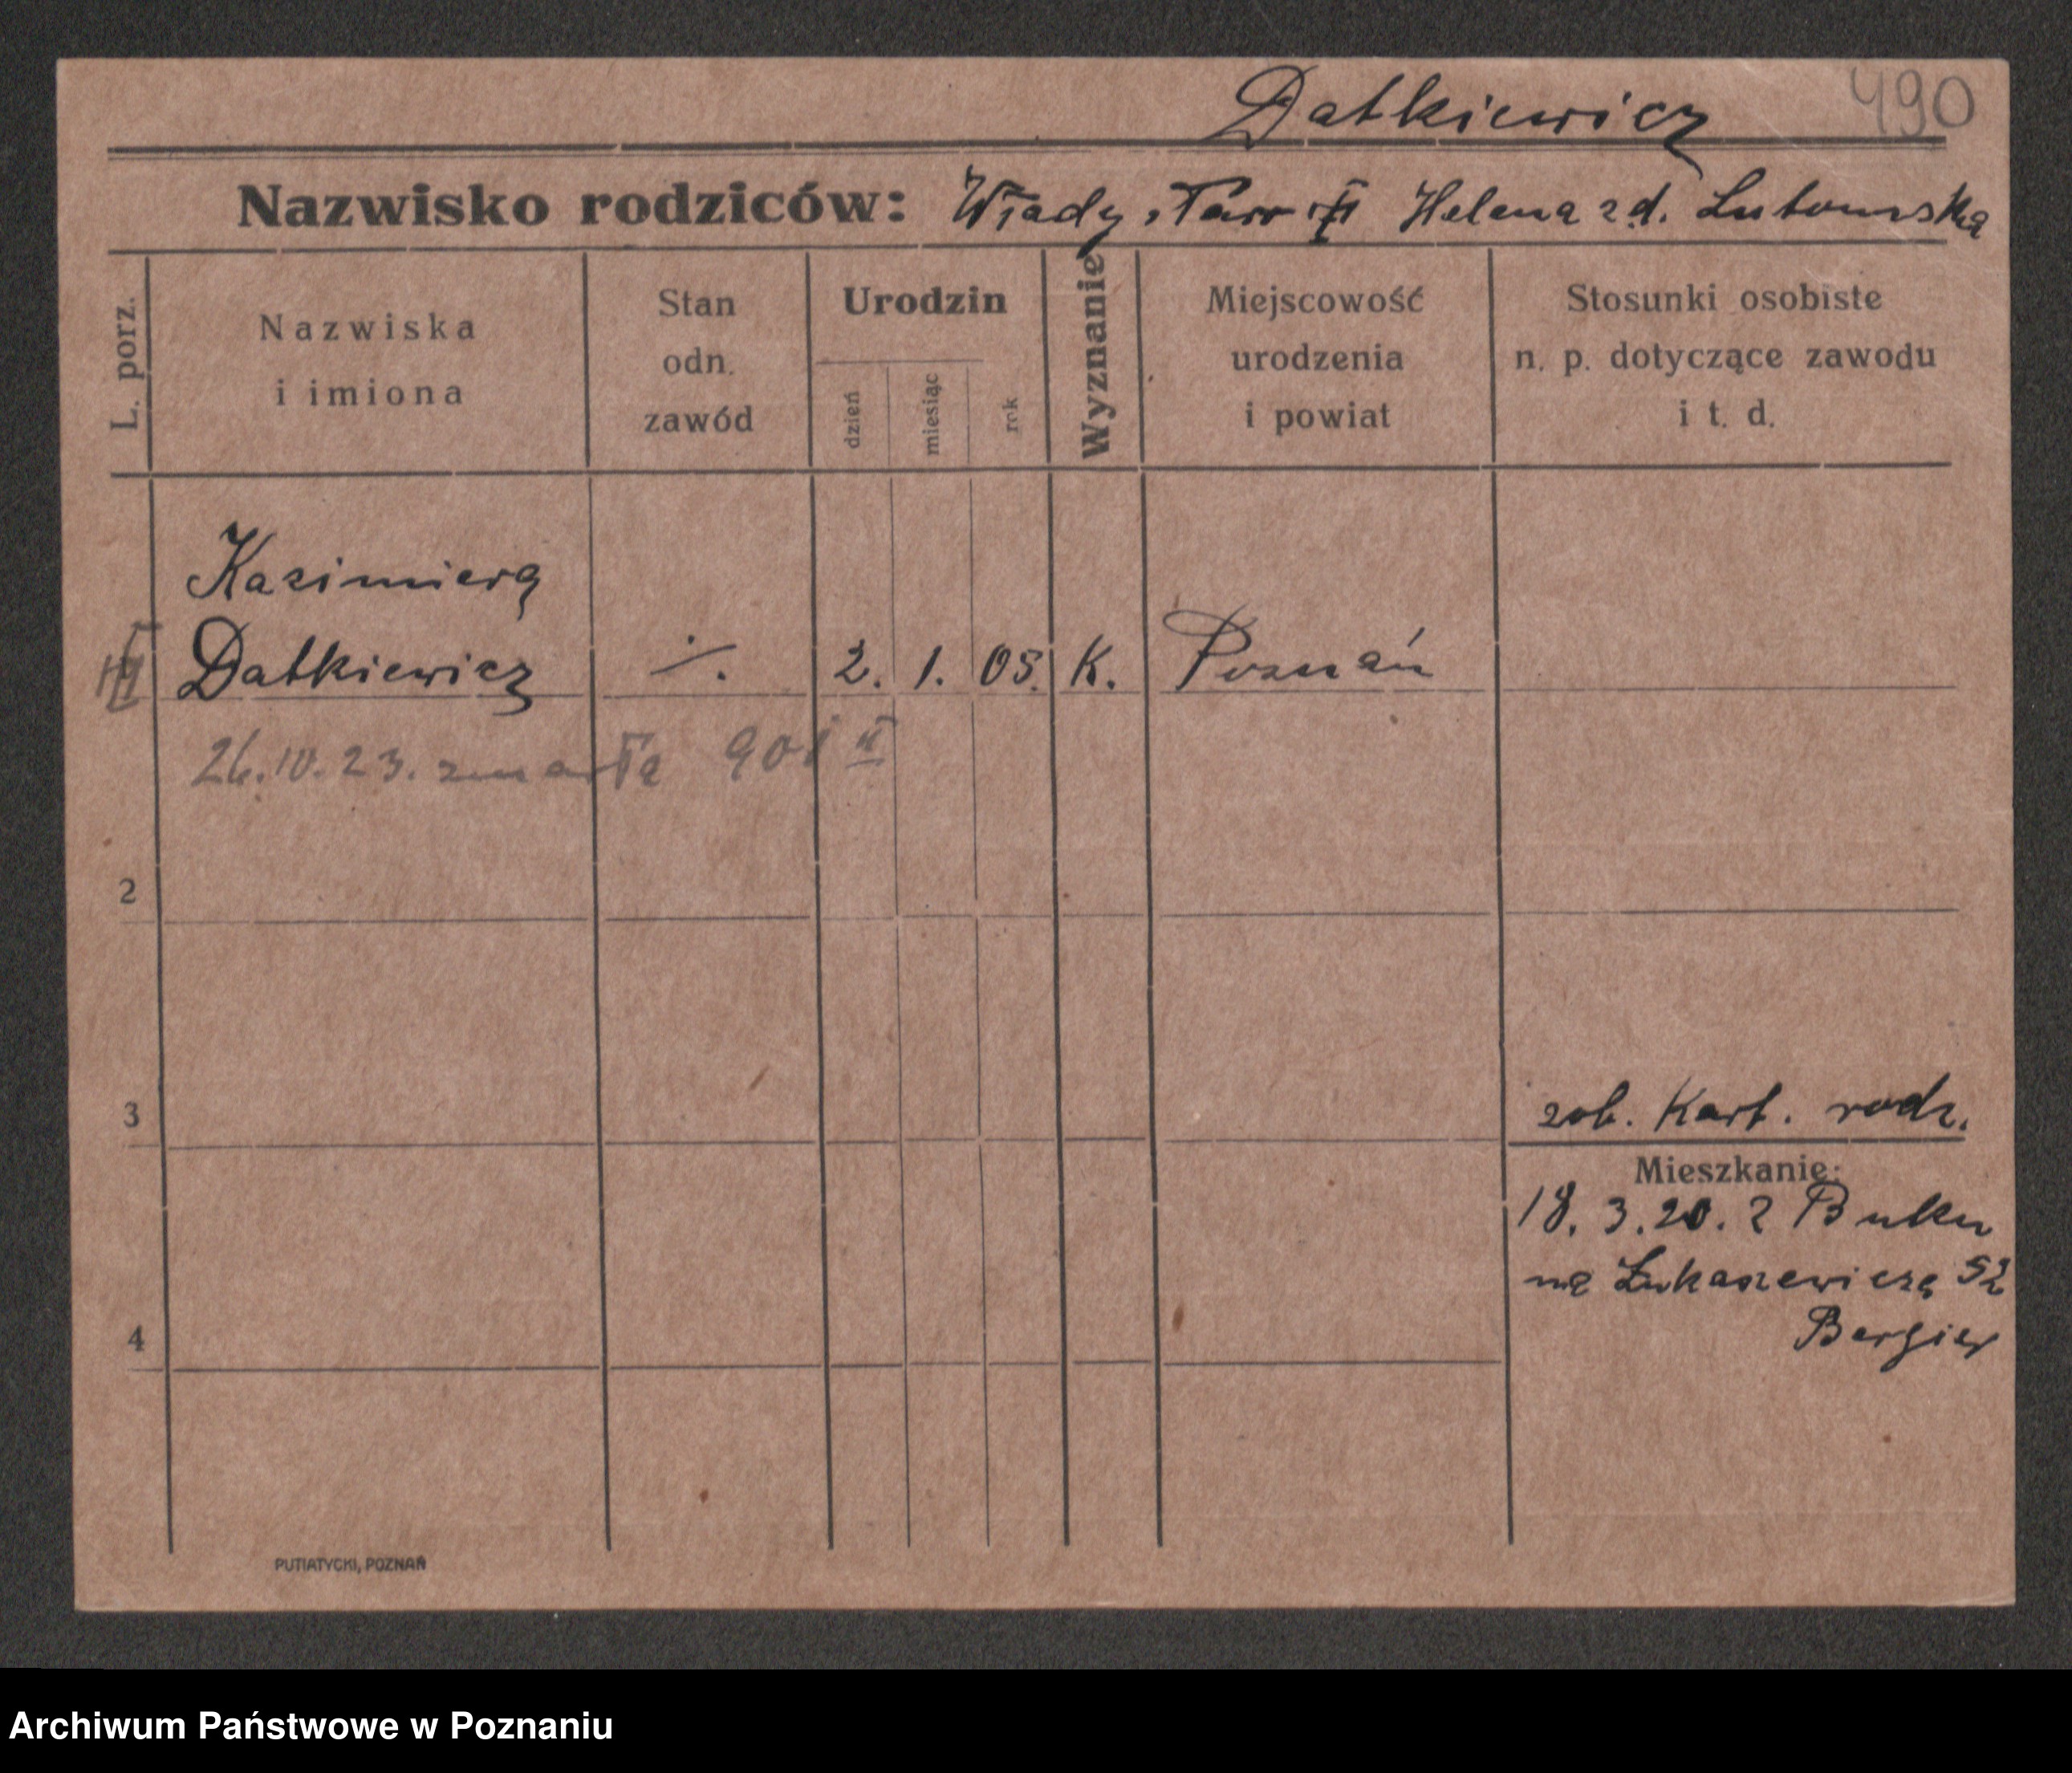 Datkiewicz 490
Nazwisko rodziców: Władysław i Helena zd. Lutomska
L. porz.
Nazwiska
i imiona
Stan
odn.
zawód
Urodzin
dzień
miesiąc
rok
Wyznanie
Miejscowość
urodzenia
i powiat
Stosunki osobiste
n. p. dotyczące zawodu
i t. d.
Kazimiera
Datkiewicz ./. 2. 1. 05. K. Poznań
26.10.23. zmarła 901 II
2
3
zob. Kart. rodz.
Mieszkanie:
18. 3. 20. z Buku
na Łukaszewicza 52
4
PUTIATYCKI, POZNAŃ
Archiwum Państwowe w Poznaniu